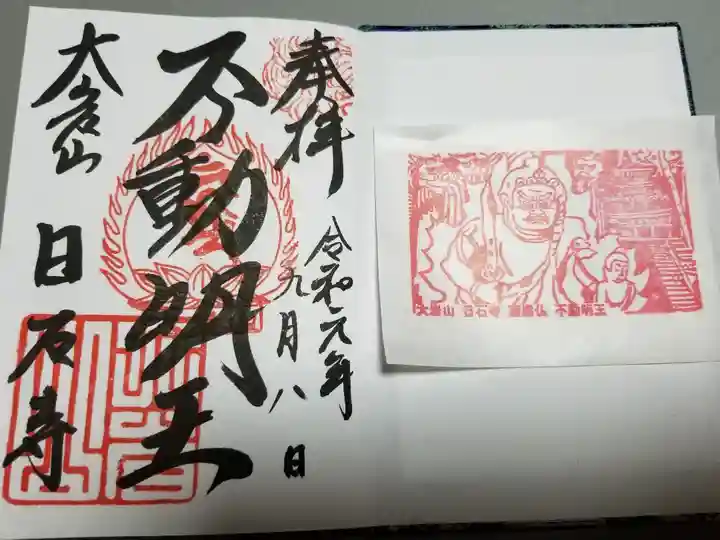 奉拝
令和元年
九月八日
不動明王
大岩山
日石寺
大岩山 日石寺 磨崖仏 不動明王